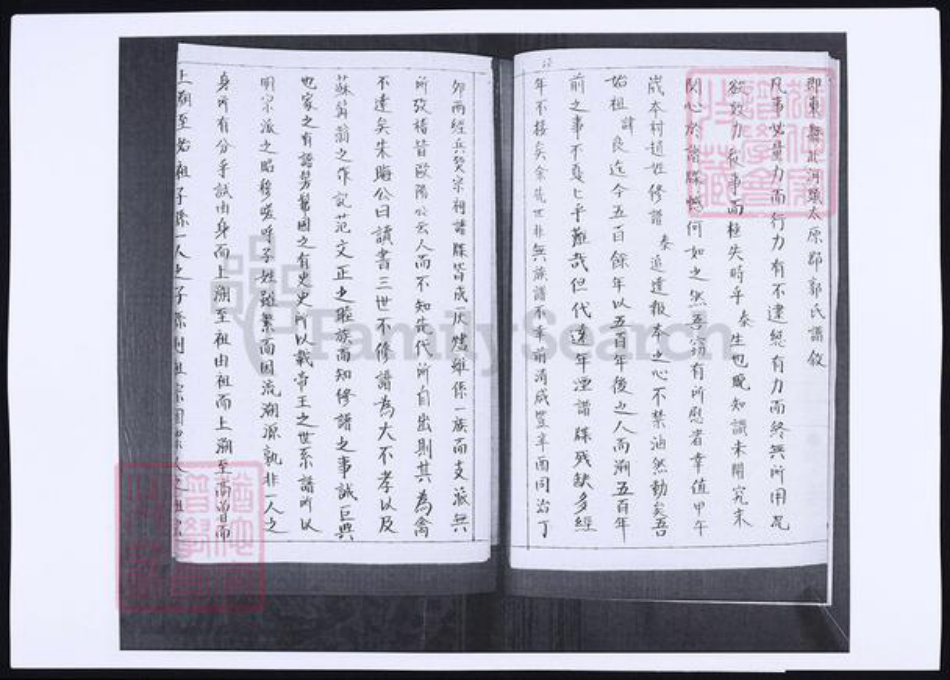 即東無北河頭太原郡郭氏譜敘
凡事必量力而行力有不逮總有力而終無所用况
欲效力從事而輒失時乎 泰生也晚知識未開究未
関心於譜牒憾何如之然吾竊有所慰者幸值甲午
歲本村趙姓修譜 泰追遠報本之心不禁油然動矣吾
始祖 諱良迄今五百餘年以五百年後之人而溯五百年
前之事不戛乎難哉但代遠年湮譜牒残缺多經
年不接矣余先世非無族譜不幸前清咸豐辛酉同治丁
卯两經兵燹宗祠譜牒皆成灰燼雖係一族而支派無
所攷稽昔歐陽公云人而不知先代所自出則其為禽
不遠矣朱晦公曰讀書三世不修譜為大不孝以及
蘇 之作記范文正之 族而知修譜之事誠巨典
也家之有譜 國之有史史所以載帝王之世系譜所以
明宗派之昭穆嗟呼子姓雖繁而因流溯源孰非一人之
身所有分乎試由身而上溯至祖由祖而上溯至高曾而
上溯至始祖子孫一人之子孫則祖宗
FamilySearch